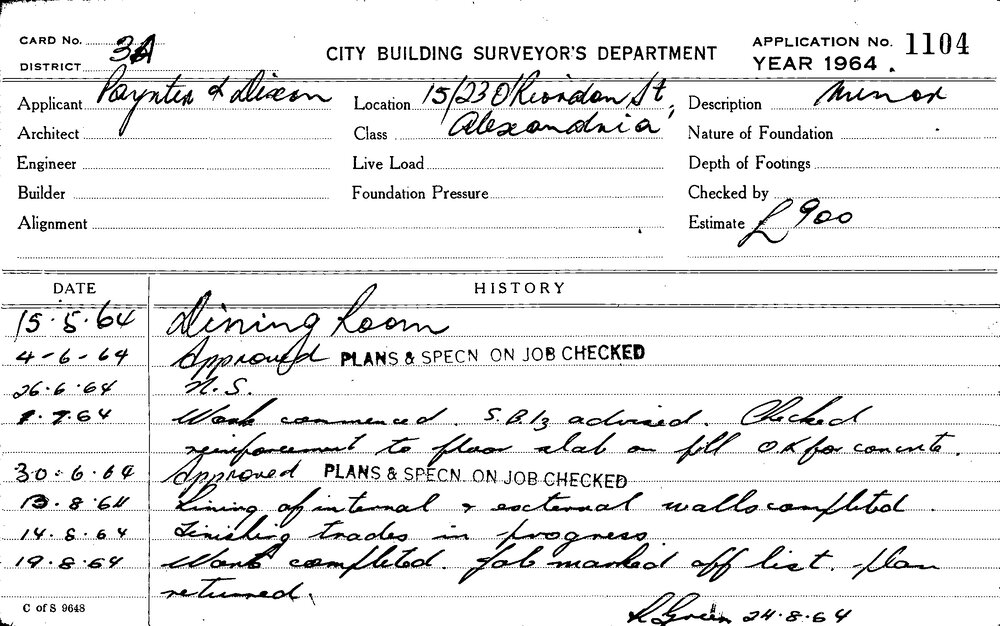 CARD No. 3A CITY BUILDING SURVEYOR'S DEPARTMENT APPLICATION No. 1104
DISTRICT YEAR 1964
Applicant Poynter & Dixon Location 15/23 O'Riordan St, Description Minor
Architect Class Alexandria Nature of Foundation
Engineer Live Load Depth of Footings
Builder Foundation Pressure Checked by
Alignment Estimate £900
DATE HISTORY
15.5.64 Dining Room
4-6-64 Approved PLANS & SPECN ON JOB CHECKED
26.6.64 N.S.
7.64 Work commenced. advised. Checked
reinforcement to floor slab on fill OK for concrete.
30.6.64 Approved PLANS & SPECN. ON JOB CHECKED
13.8.64 Lining of internal & external walls completed.
14.8.64 Finishing trades in progress.
19.8.64 Work completed. Job marked off list. Plan
returned.
C of S 9648 Green 24.8.64